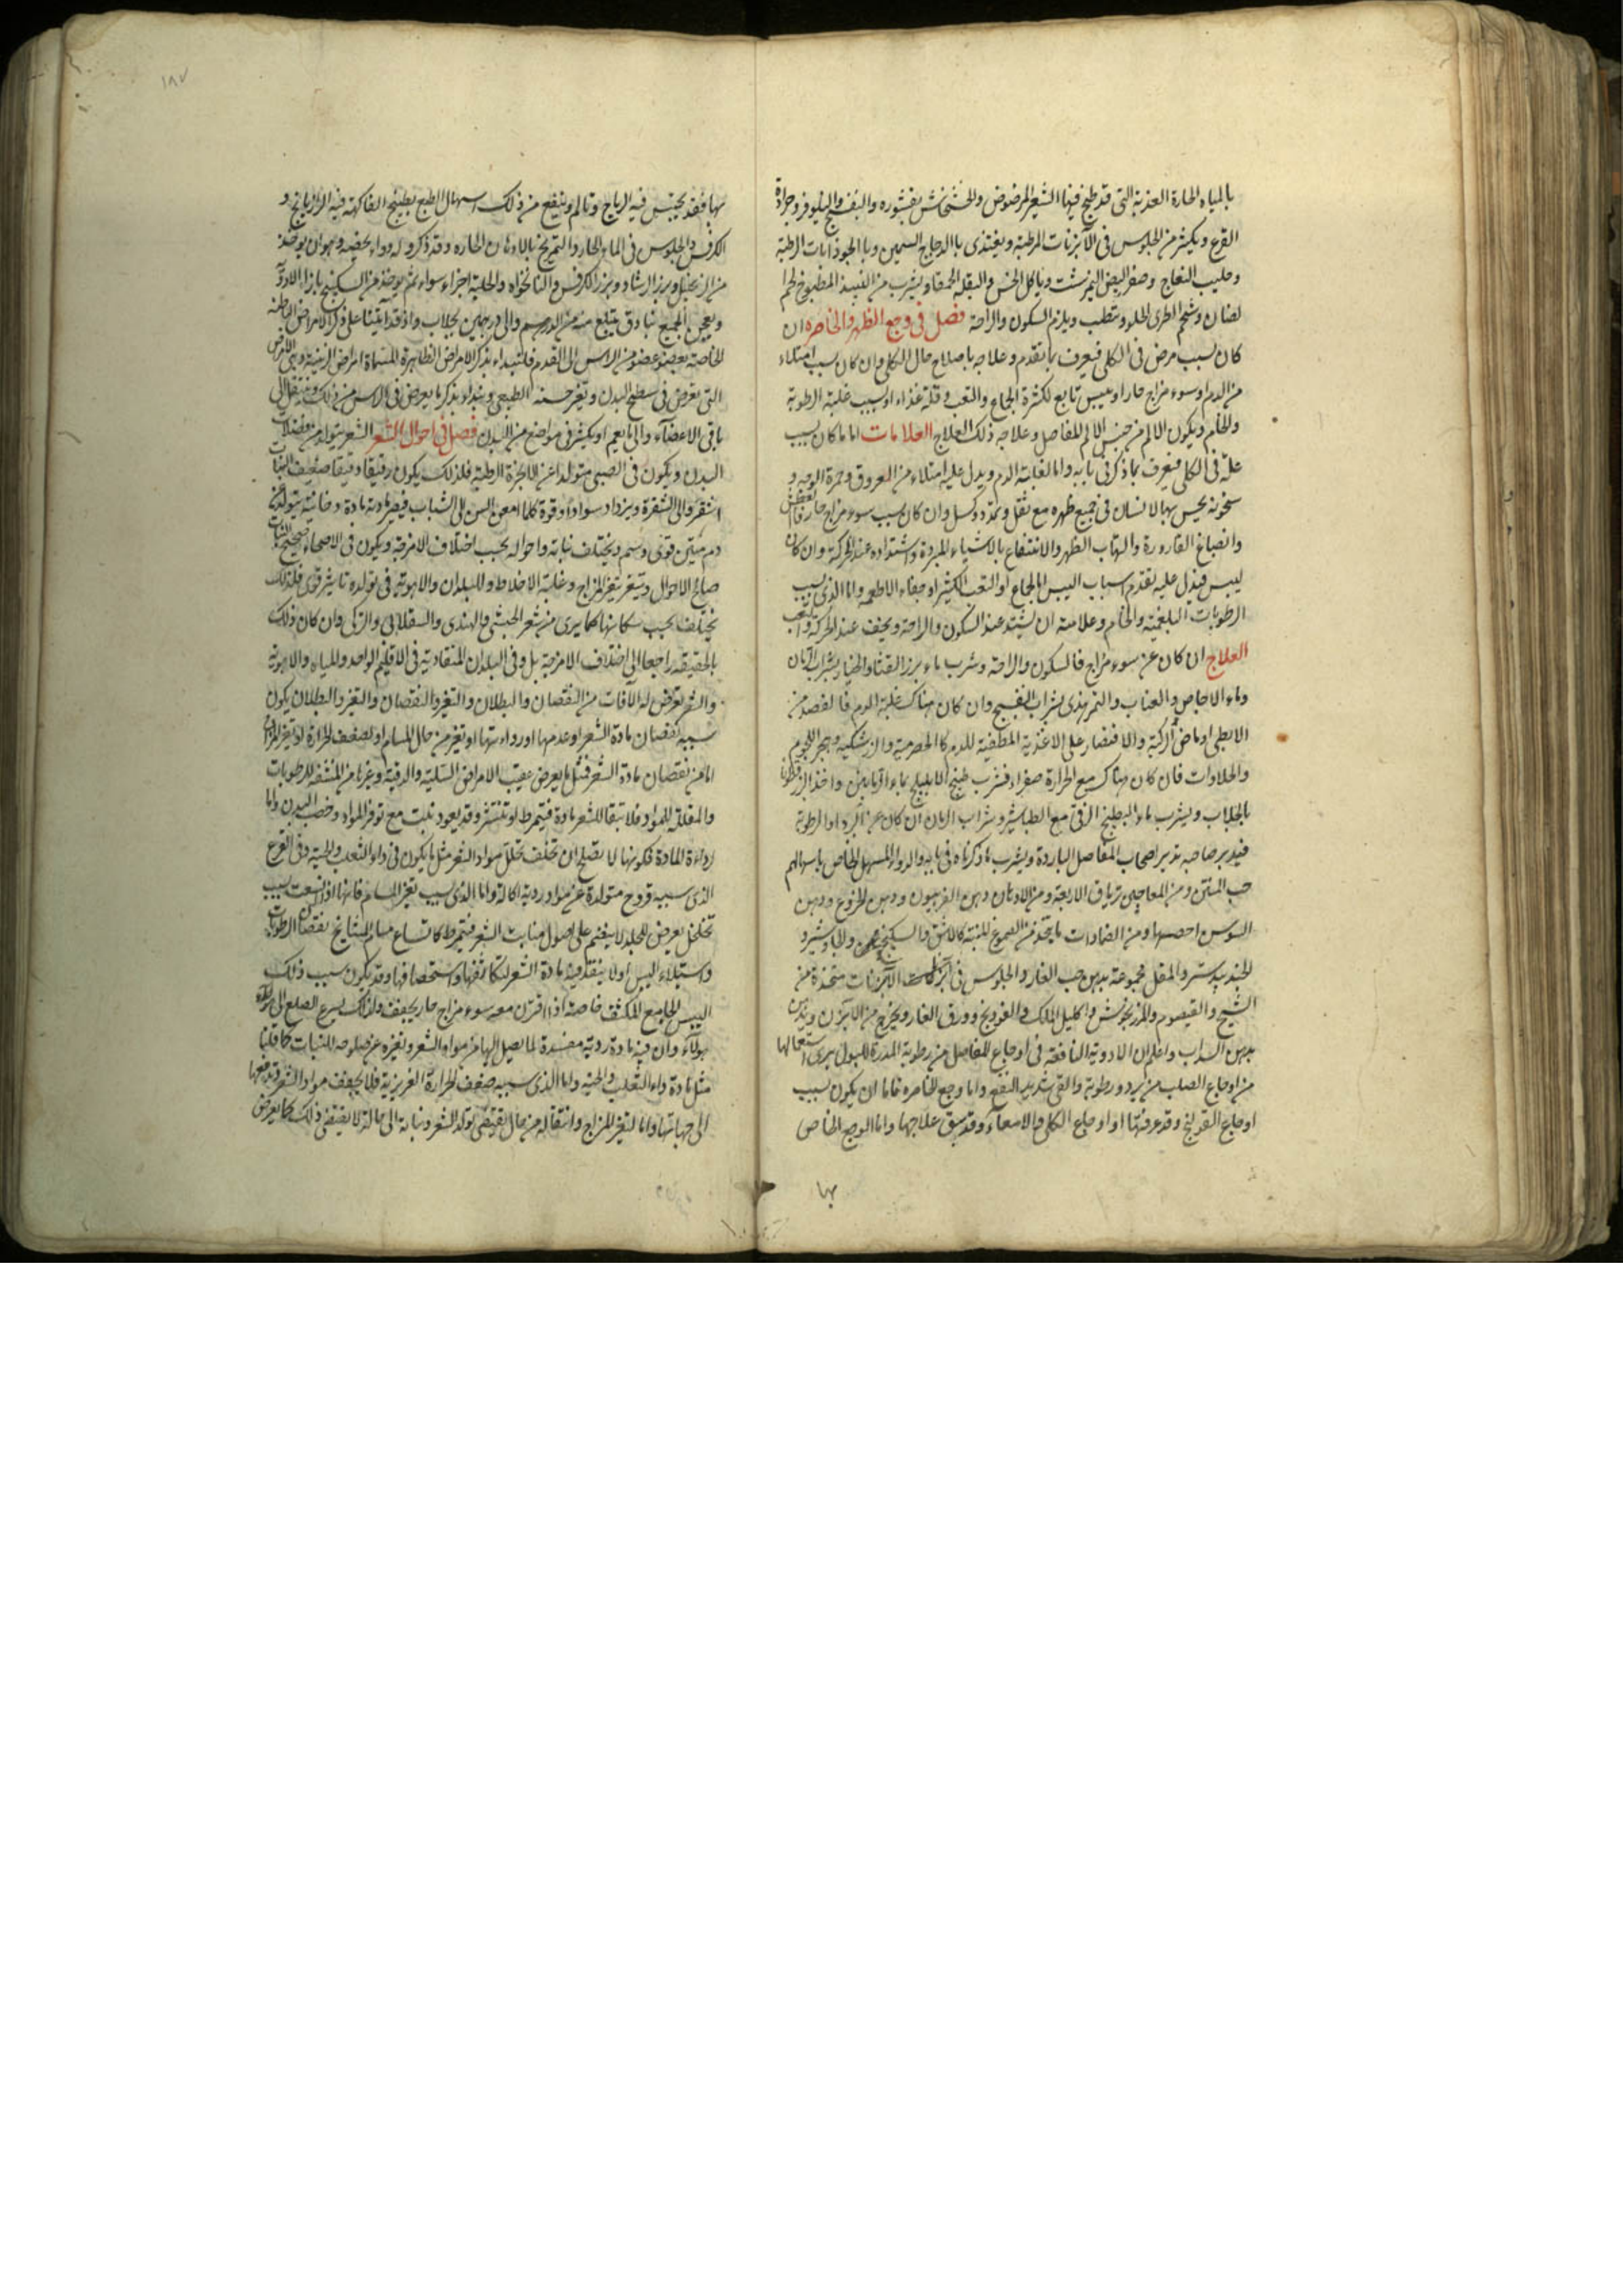 بالمياه الحارة العذبة التى قد طبخ فيها الشعير المرضوض والخشخاش بقشوره والبنفسج والنيلوفر وجرادة
القرع ويكثر من الجلوس فى الآبزنات المرطبة ويغتذى باالدجاج السمين وباالجوذابات الرطبة
وحليب النعاج وصفر البيض النيمرشت وياكل الخس والبقلة الحمقا ويشرب من النبيذ المطبوخ لحم
لضان وشحم الطرى الحلو ويتطيب ويلزم السكون والراحة فصل فى وجع الظهر والخاصره ان
كان بسبب مرض فى الكلى فيعرف بما تقدم وعلاجه باصلاح حال الكلى وان كان بسبب امتلاء
من الدم او سوء مزاج حار او يبس تابع لكثرة الجماع والتعب وقلة غذاء او بسبب غلبة الرطوبة
والخام ويكون الالم من جنس الالم للمفاصل وعلاجه ذلك العلاج العلامات اما ما كان بسبب
علة فى الكلى فيعرف بما ذكر فى بابه واما لغلبة الدم ويدل عليه امتلاء من العروق وحمرة الوجه و
سخونة يحس بها الانسان فى جميع ظهره مع ثقل وتمدد وكسل وان كان بسبب سوء مزاج حار فالعطش
وانصباغ القارورة والتهاب الظهر والانتفاع بالاشياء المبردة واشتداده عند الحركة وان كان
ليبس فيدل عليه تقدم اسباب اليبس اما لجماع او التعب الكثير او جفاء الاطعمه واما الذى بسبب
الرطوبات البلغمية والخام وعلامته ان يشتد عند السكون والراحة ويخف عند الحركة والتعب
العلاج ان كان عن سوء مزاج فالسكون والراحة وشرب ماء بزر القثا والخيار بشراب الرمان
وماء الاجاص والعناب والتمر هندى بشراب البنفسج وان كان هناك غلبة الدم فالفصد من
الابطى او مابض الركبة والاقتصار على الاغذية المطفية للدم كا الحصرمية والزرشكية وهجر اللحوم
والحلاوات فان كان هناك مع الحرارة صفراء فشرب طبيخ الاهليلج بماء الرمانين واخذ البزرقطونا
بالجلاب ويشرب ماء البطيخ الرقى مع الطباشير وشراب الرمان ان كان عن البرد او الرطوبة
فيدبر صاحبه تدبير اصحاب المفاصل الباردة ويشرب ما ذكرناه فى بابه والدواء المسهل الخاص باسهالهم
حب المنتن ومن المعاجين ترياق الاربعة ومن الادهان دهن الفربيون ودهن الخروع ودهن
السوس احصبها ومن الضمادات ما يتخذ من الصموغ المنتنة كالاشق والسكبينج والجاوشير و
الجندبيدستر والمقل مجموعة بدهن حب الغار والجلوس فى الآبزنات متخذة من
الشيح والقيصوم والمرزنجوش واكليل الملك والفودنج وورق الغار ويخرج من الآبزن ويدهن
بدهن السداب واعلم ان الادوية النافعة فى اوجاع المفاصل من رطوبة المدرة للبول يبرى استعمالها
من اوجاع الصلب من برد ورطوبة والقى شديد النفع واما وجع الخاصره فاما ان يكون بسبب
اوجاع القولنج وقد عرفتها او اوجاع الكلى والامعآء وقد سبق علاجها واما الوجع الخاص
بها
١٨٧
بها فقد يحتبس فيه الرياح وتالم وينفع من ذلك اسهال الطبع بطبيخ الفاكهة فيه الرازيانج و
الكرفس والجلوس فى الماء الحار والتمريخ بالادهان الحاره وقد ذكروا له دواء يخصه وهو ان يوخذ
من الزنجبيل وبزر الرشاد وبزر الكرفس والنانخواه والحلبة اجزاء سواء ثم يوخذ من السكبينج بازاء الادوية
ويعجن الجميع بنادق يبتلع منه من الدرهم والى درهمين بجلاب واذ قد اتينا على ذكر الامراض الباطنة
الخاصة بعضو عضو من الراس الى القدم فلنبداء بذكر الامراض الظاهرة المسماة امراض الزينية وهى الامراض
التى تعرض فى سطح البدن وتغير حسنه الطبيعى ونبداء بذكر ما يعرض فى الراس من ذلك وننتقل الى
باقى الاعضآء والى ما يعم او يكثر فى مواضع من البدن فصل فى احوال الشعر الشعر يتولد من فضلات
البدن ويكون فى الصبى متولدا عن الابخرة الرطبة فلذلك يكون رقيقا دقيقا ضعيف النبات
اشقر والى الشقرة ويزداد سوادا وقوة كلما امعن السن الى الشباب فيصير مادته مادة دخانية يتولد عن
دم متين قوى دسم ويختلف نباته واحواله بحسب اختلاف الامزجة ويكون فى الاصحاء صحيح النبات
صالح الاحوال ويتغير بتغير المزاج وغلبة الاخلاط وللبلدان والاهوية فى تولده تاثير قوى فلذلك
يختلف بحسب سكانها كما يرى من شعر الحبشى والهندى والسقلابى والتركى وان كان ذلك
بالحقيقة راجعا الى اختلاف الامزجة بل وفى البلدان المتقاربة فى الاقليم الواحد وللمياه والاهوية
والشعر تعرض له الآفات من النقصان والبطلان والتغير والنقصان والتغير والبطلان يكون
سببه نقصان مادة الشعر او عدمها او رداءتها او تغير من حال المسام او لضعف الحرارة او تغير المزاج
اما من نقصان مادة الشعر فمثل ما يعرض عقيب الامراض السلية والدقية وغيرها من المنشفة للرطوبات
والمقللة للمواد فلا تبقا للشعر مادة فيتمرط او تنتشر وقد يعود نبت مع توفر المواد وخصب البدن واما
رداءة المادة فكونها لا تصلح ان تخلف تحلل مواد الشعر مثل ما يكون فى داء الثعلب والحية وفى القرع
الذى سببه قروح متولدة عن مواد ردية اكالة واما الذى بسبب تغير المسام فانها اذا اتسعت بسبب
تخلخل يعرض للجلد لا ينضم على اصول منابت الشعر فيتمرط كاتساع مسام المشايخ نقصان الرطوبات
واستيلاء اليبس او لا ينفذ فيه مادة الشعر لتكاثفها واستحصافها وقد يكون بسبب ذلك
اليبس الجامع المكثف خاصة اذا اقترن معه سوء مزاج حار يجفف ولذلك يسرع الصلع الى هولاء
هولآء وان فيه مادة ردية مفسدة لما يصل اليها من مواد الشعر وتغيره عن صلوحه للنبات كما قلنا
مثل مادة داء الثعلب والحية واما الذى سببه ضعف الحرارة الغريزية فلا يجفف مواد الشعر وتدفعها
الى جهاتها واما لتغير المزاج وانتقاله من حال يقتضى تولد الشعر ونباته الى حالة لا يقتضى ذلك كما يعرض